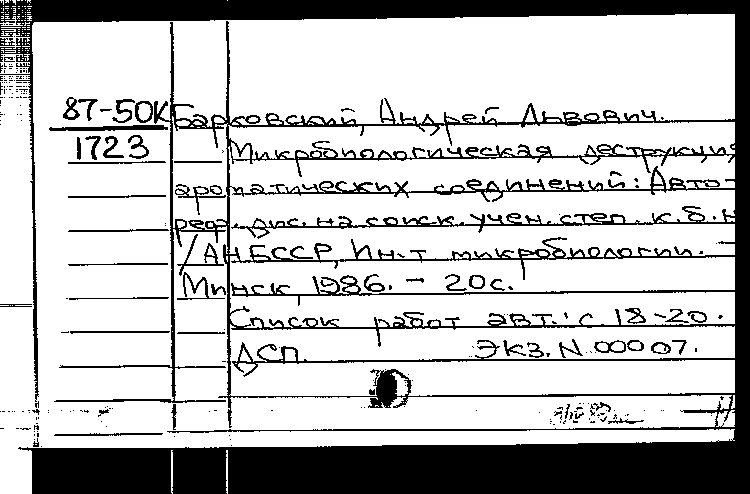 87-50К Барковский, Андрей Львович.
1723 Микробиологическая деструкция
ароматических соединений: Авто-
реф. дис. на соиск. учен. степ. к.б.н
/АН БССР, Ин-т микробиологии. -
Минск, 1986. - 20с.
Список работ авт.: с. 18-20.
ДСП. Экз. N 00007.